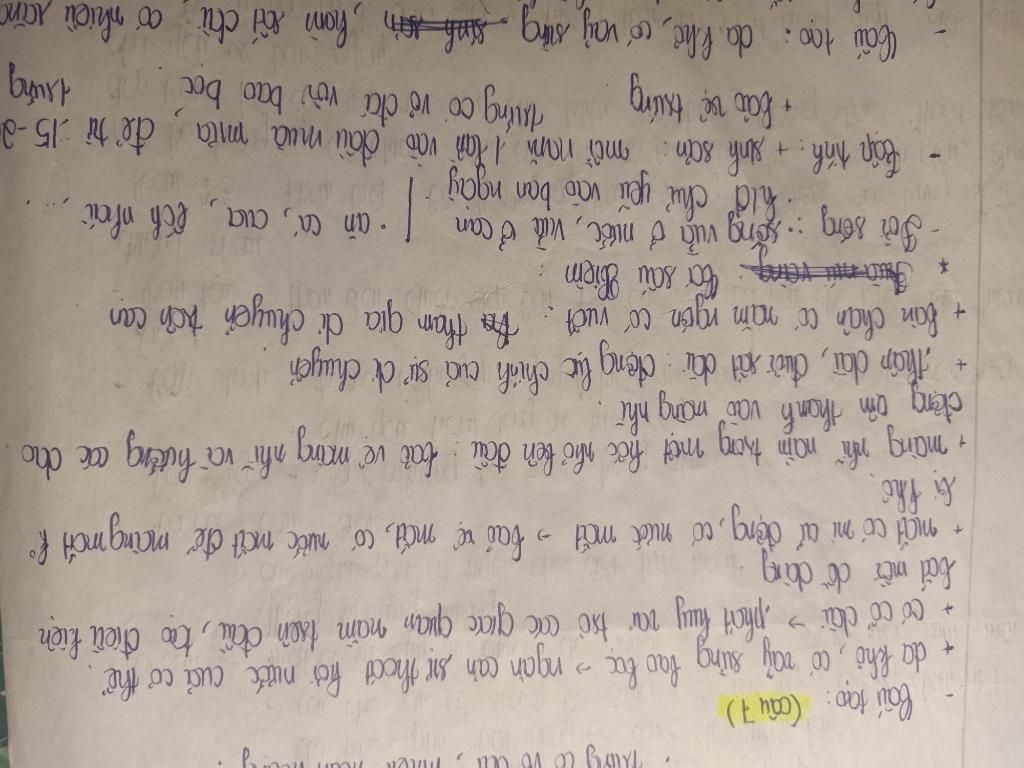 Trứng có vỏ dai, nhiều noãn hoàng.
- Cấu tạo: (câu 7)
+ da khô, có vảy sừng bao bọc → ngăn cản sự thoát hơi nước của cơ thể.
+ có cổ dài → phát huy vai trò các giác quan nằm trên đầu, tạo điều kiện
bắt mồi dễ dàng.
+ mắt có mi cử động, có nước mắt → bảo vệ mắt, có nước mắt để màng mắt k°
bị khô.
+ màng nhĩ nằm trong một hốc nhỏ bên đầu: bảo vệ màng nhĩ và hướng các dao
động âm thanh vào màng nhĩ.
+ thân dài, đuôi rất dài: động lực chính của sự di chuyển
+ bàn chân có năm ngón có vuốt: tham gia di chuyển trên cạn
* Cá sấu Xiêm:
- Đời sống: . sống vừa ở nước, vừa ở cạn | . ăn cá, cua, ếch nhái, ...
. h/đ chủ yếu vào ban ngày
- Tập tính: + sinh sản: mỗi năm 1 lần vào đầu mùa mưa, đẻ từ 15-2
trứng có vỏ đá vôi bao bọc
+ bảo vệ trứng
- Cấu tạo: da khô, có vảy sừng, hàm rất dài, có nhiều răng